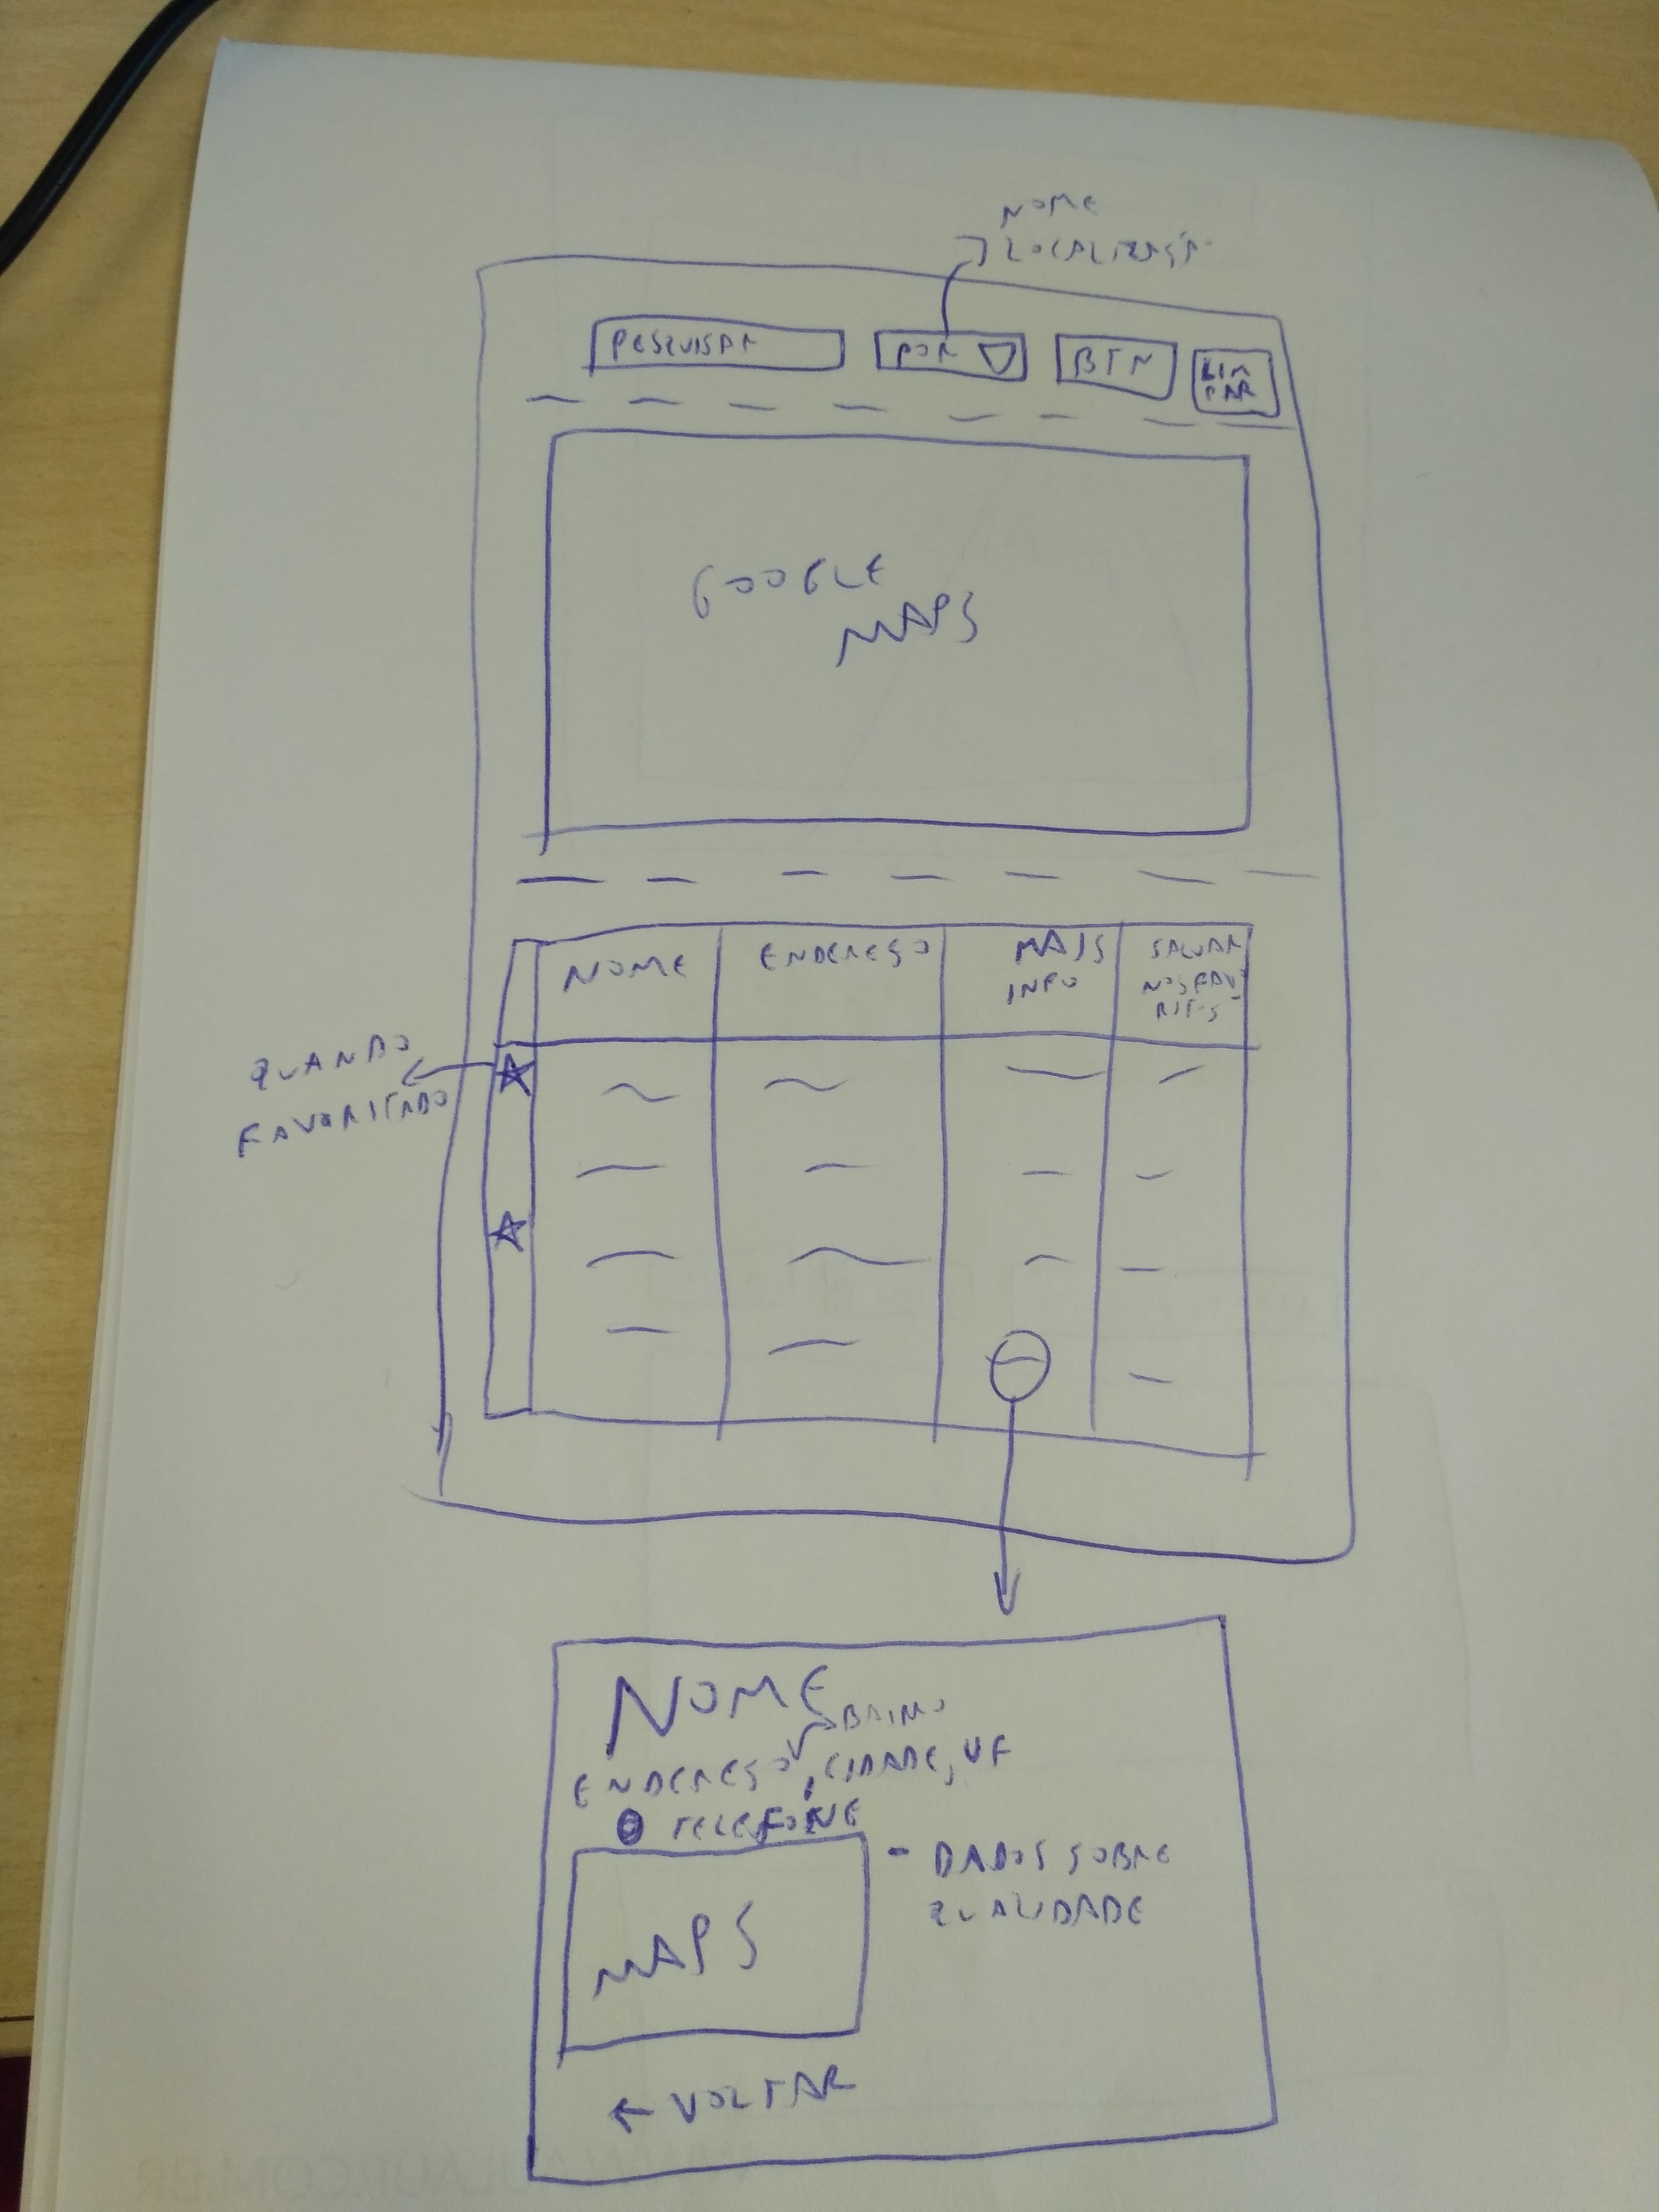 NOME
PESQUISAR
POR
BTN
LIM
PAR
GOOGLE
MAPS
NOME
ENDEREÇO
MAIS
INFO
SALVAR
NOS FAVO
RITOS
QUANDO
FAVORITADO
NOME
BAIRRO
ENDEREÇO, CIDADE, UF
TELEFONE
- DADOS SOBRE
QUALIDADE
MAPS
← VOLTAR